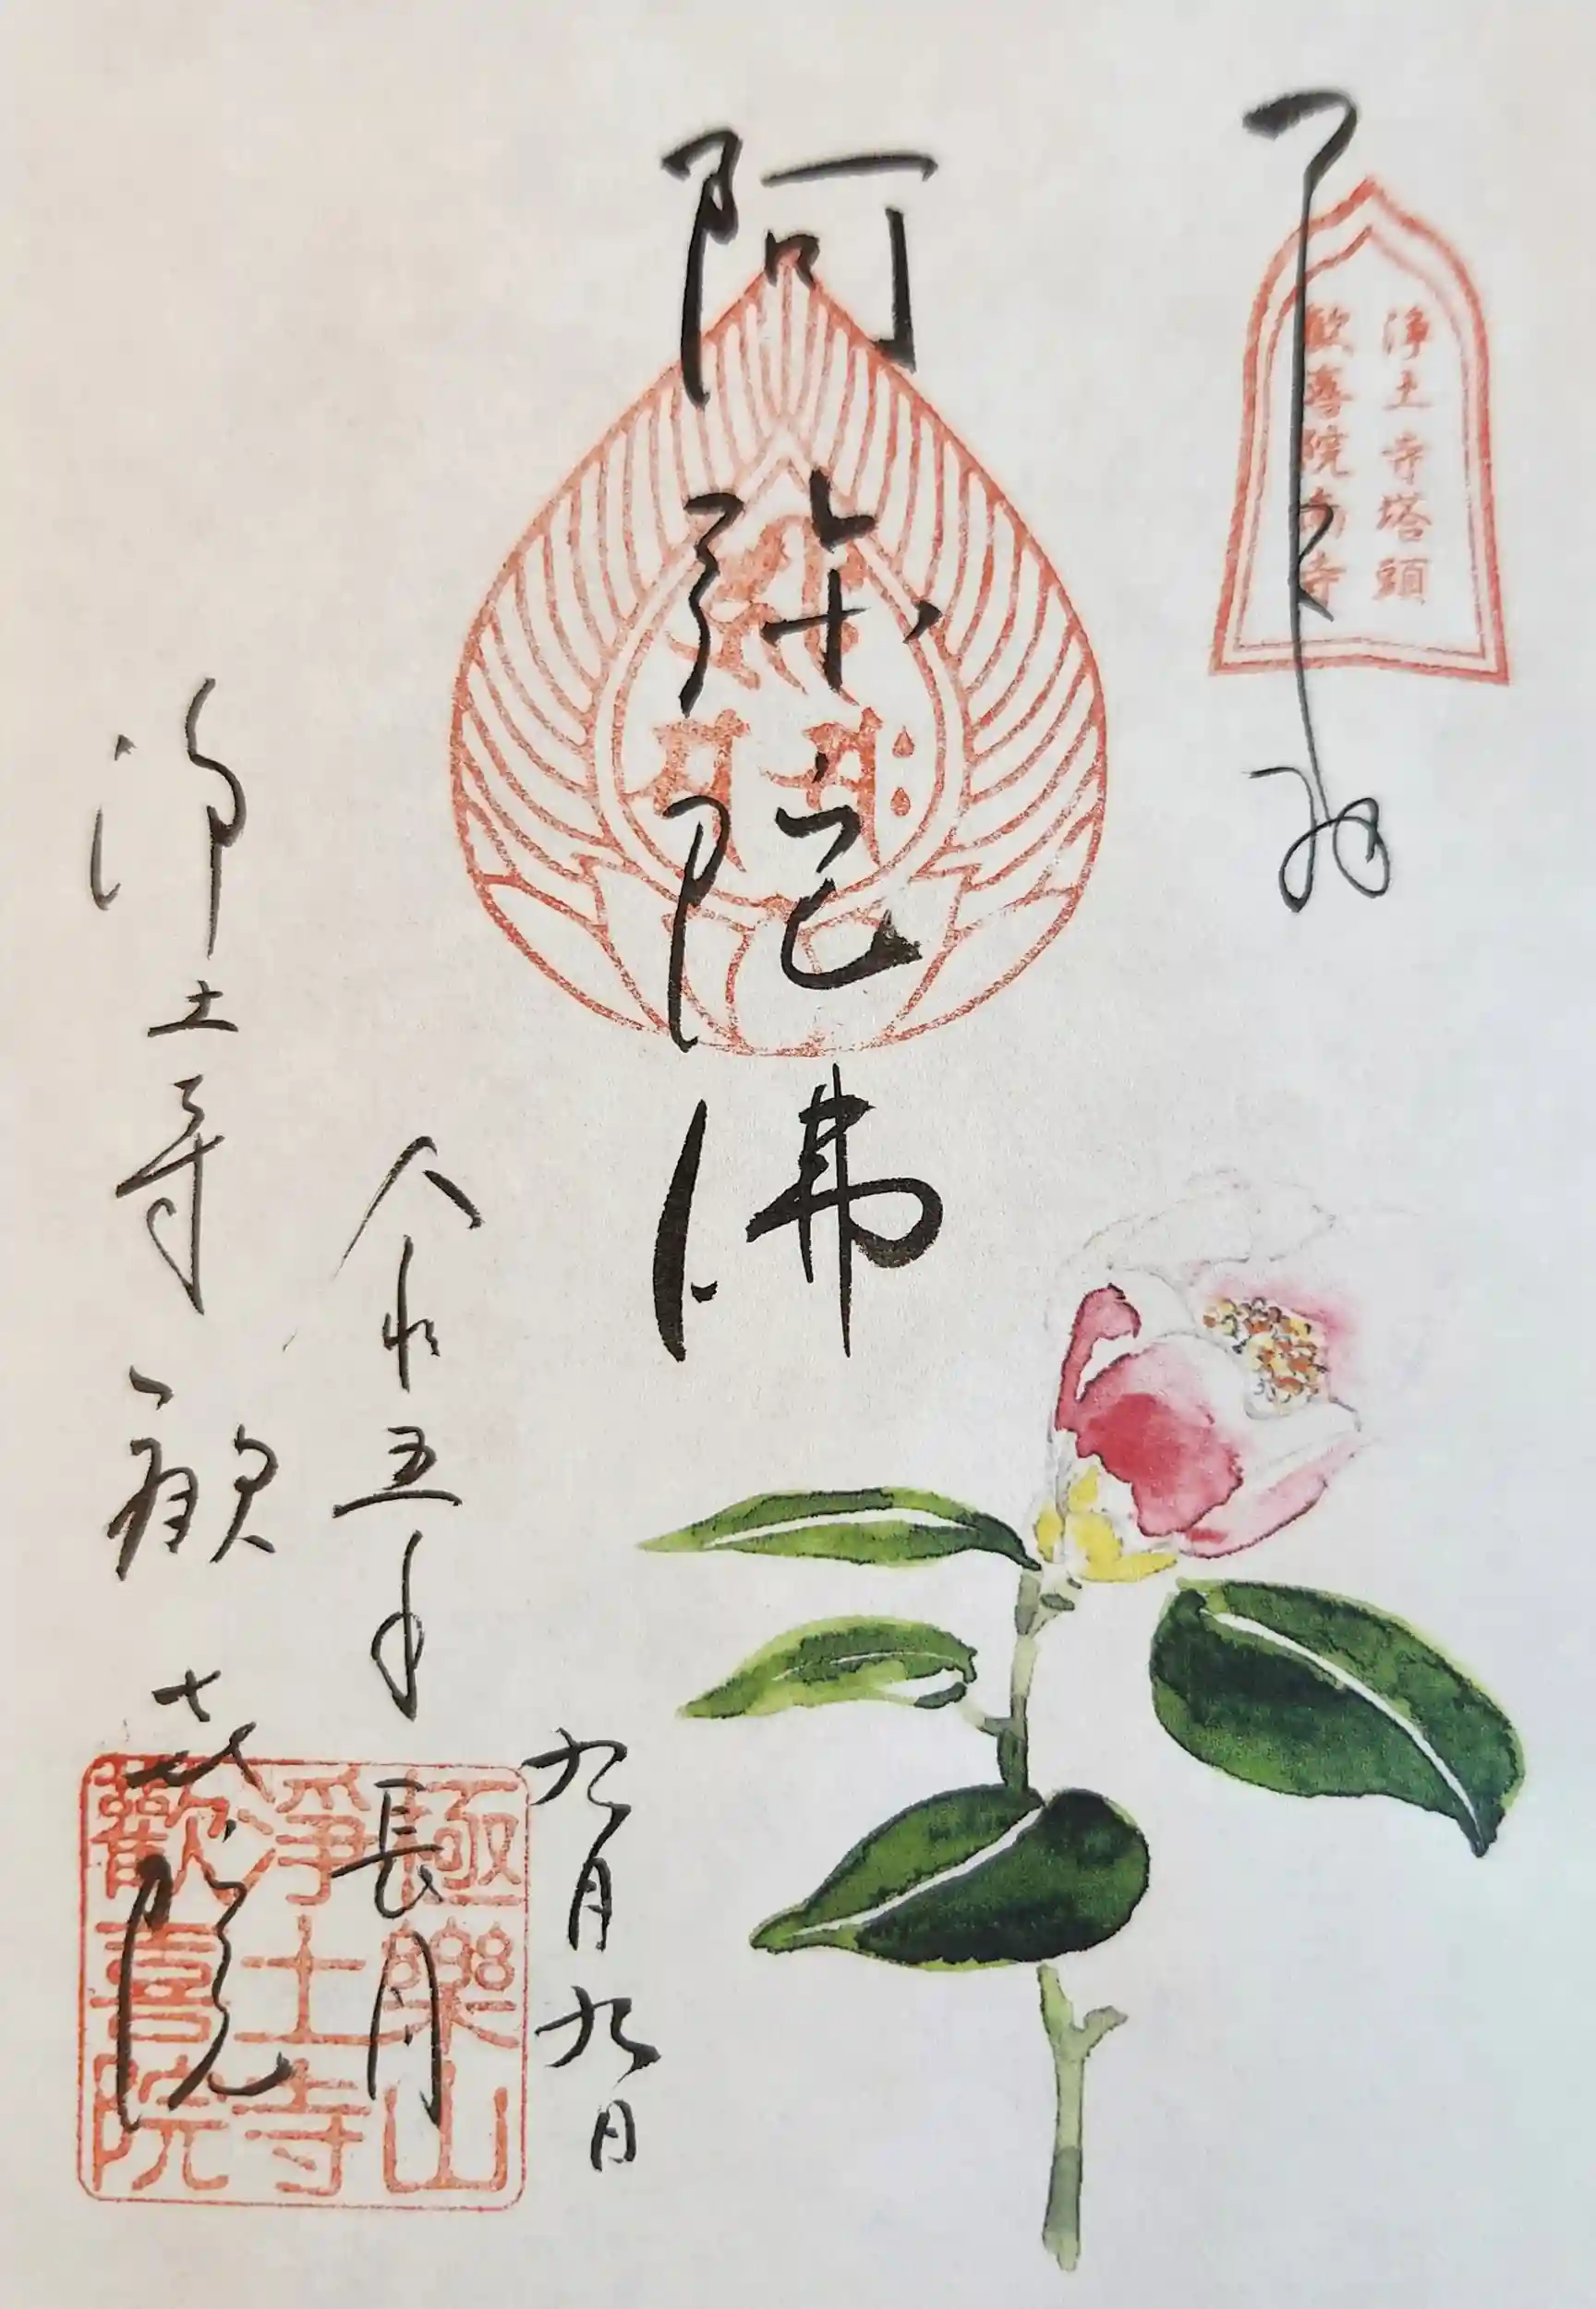 奉拝
淨土寺塔頭
歓喜院南寺
阿弥陀佛
九月九日
令和五年長月
浄土寺歓喜院
極樂山
淨土寺
歡喜院